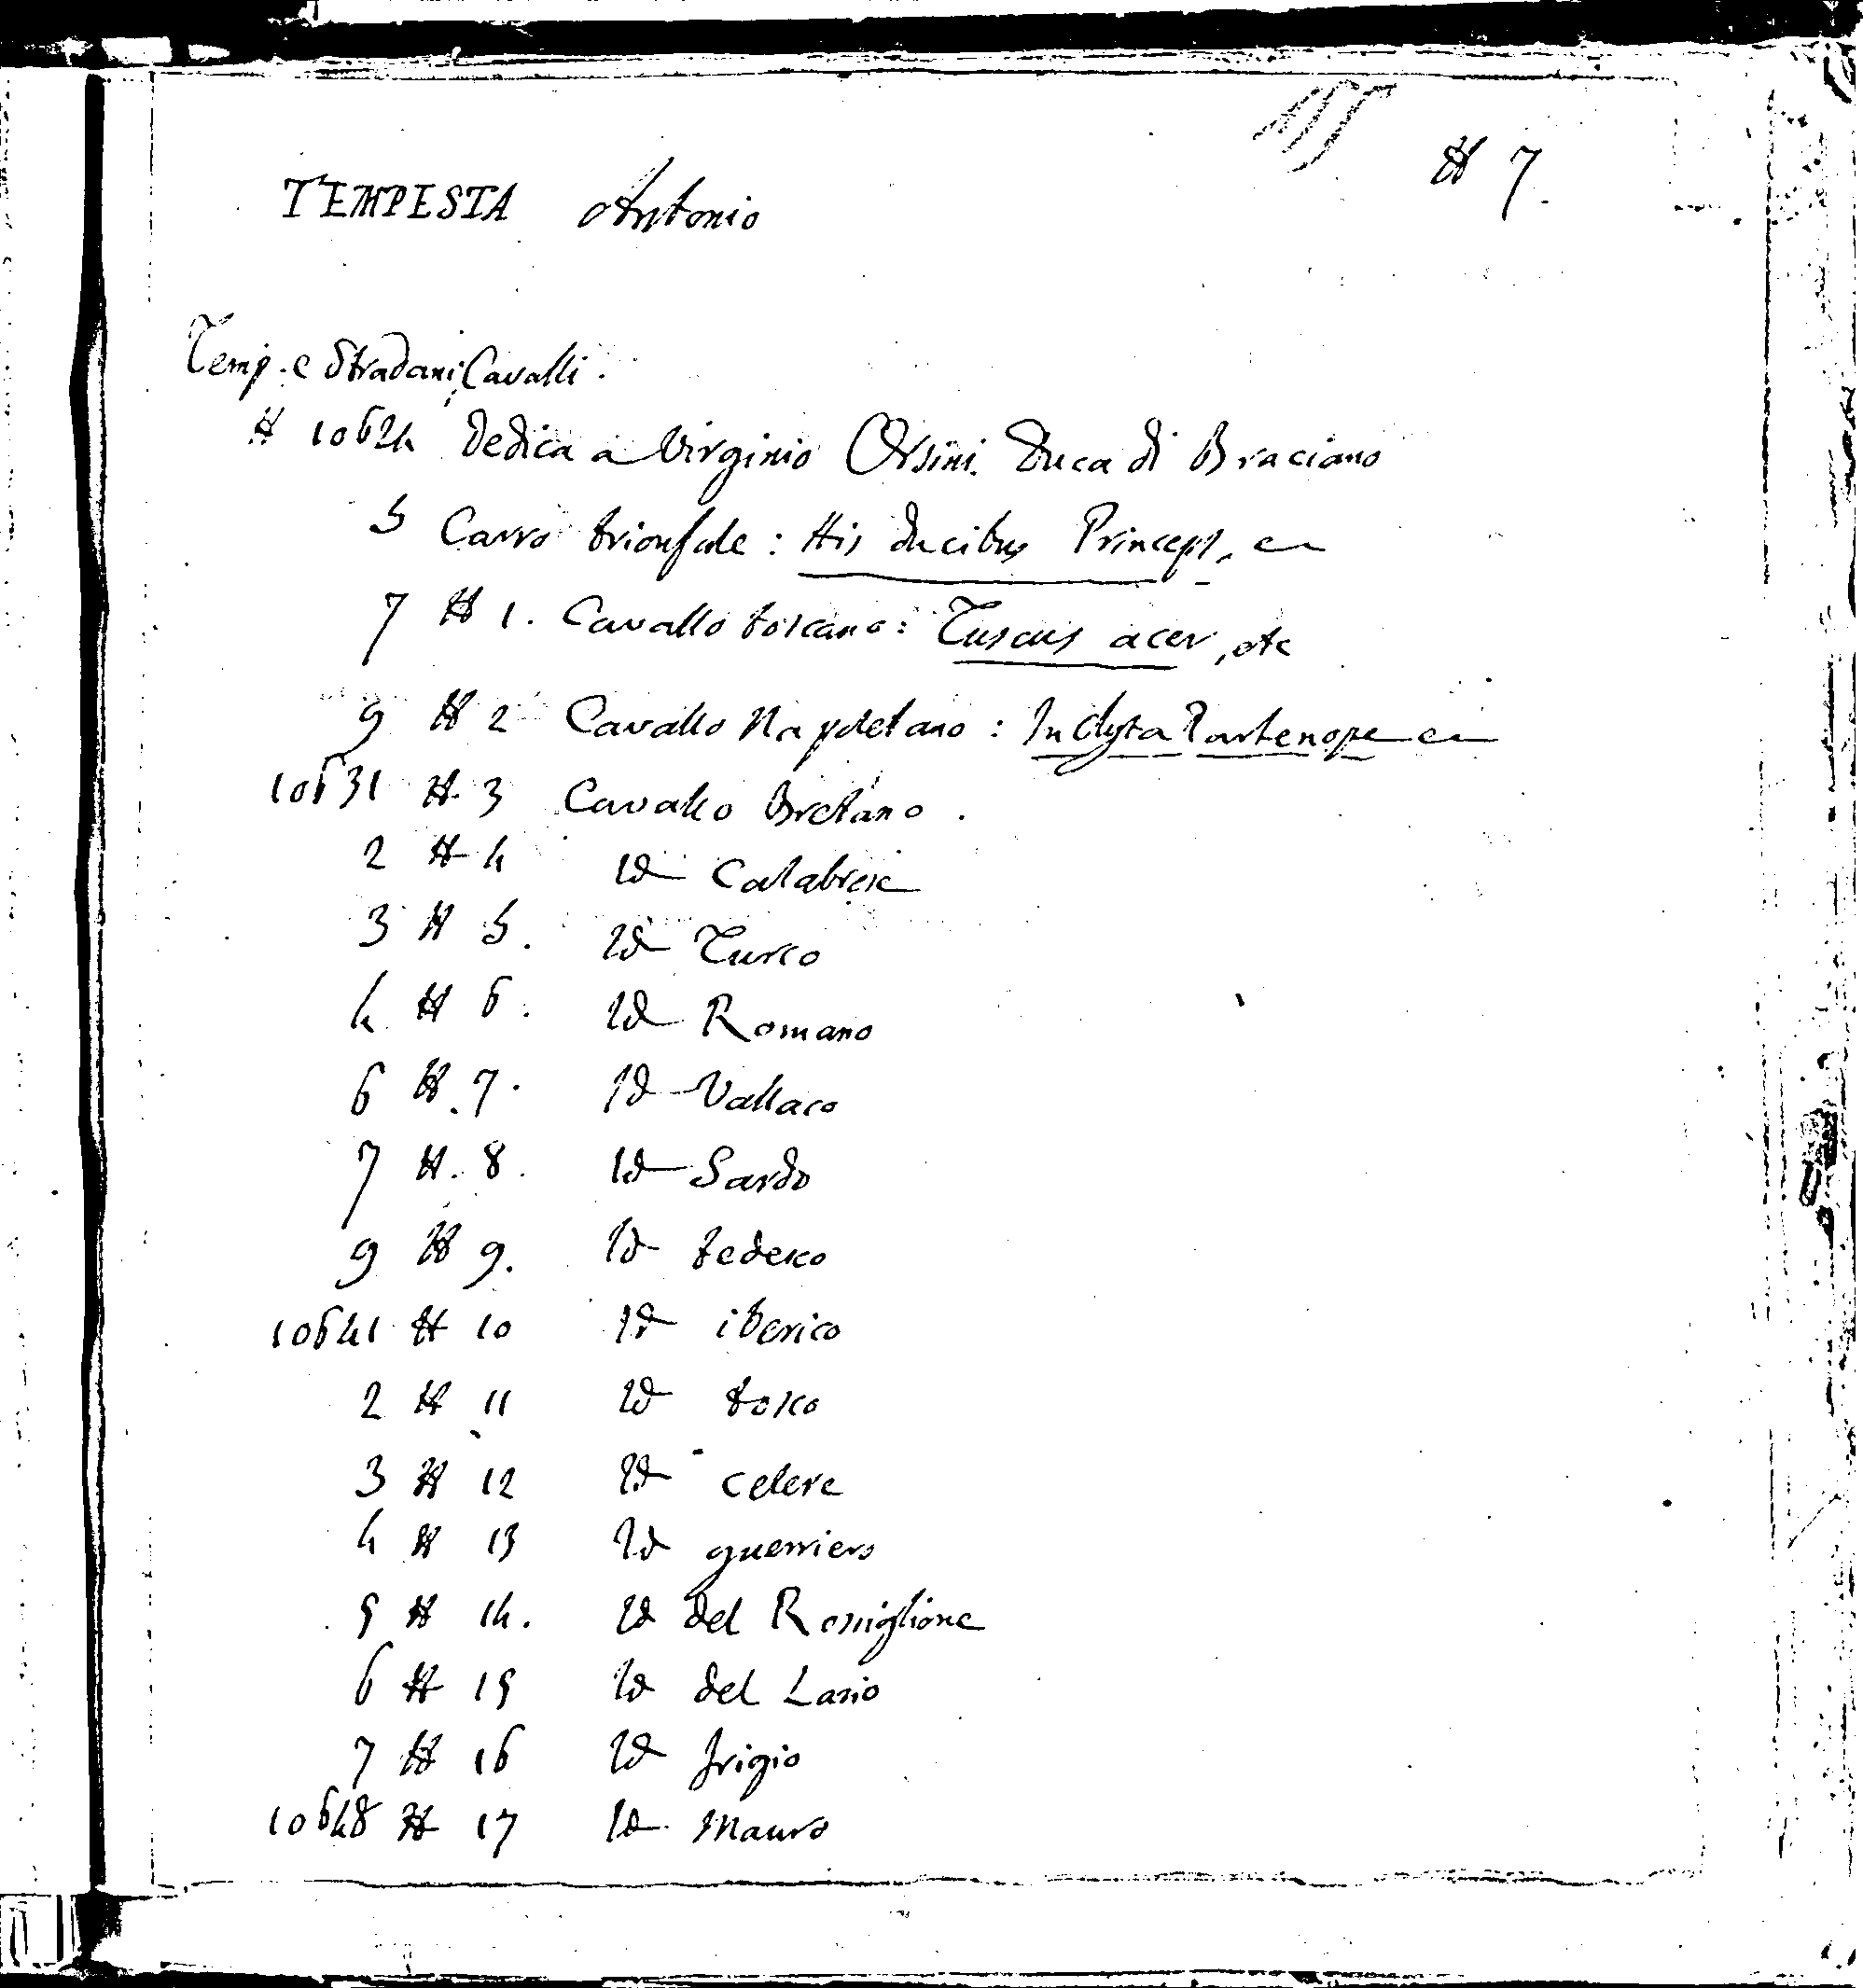 155
# 7.
TEMPESTA Antonio
Temp. e Stradani; Cavalli.
# 10624 Dedica a Virginio Orsini. Duca di Braciano
5 Carro trionfale: His ducibus Princeps, etc
7 # 1. Cavallo toscano: Tuscus acer, etc
9 # 2 Cavallo Napoletano: Inclyta Partenope etc
10631 # 3 Cavallo Bretano.
2 # 4 Id Calabrese
3 # 5. Id Turco
4 # 6. Id Romano
6 # 7. Id Vallaco
7 # 8. Id Sardo
9 # 9. Id tedesco
10641 # 10 Id iberico
2 # 11 Id tosco
3 # 12 Id celere
4 # 13 Id guerriero
5 # 14. Id del Rosiglione
6 # 15 Id del Lazio
7 # 16 Id frigio
10648 # 17 Id Mauro